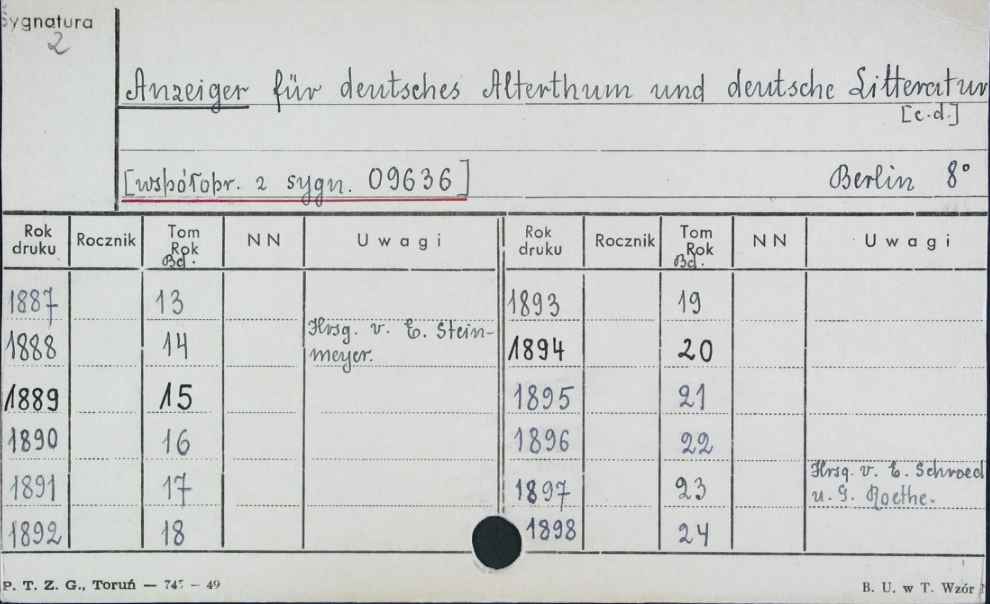 Sygnatura
2
Anzeiger für deutsches Alterthum und deutsche Litteratur
[c.d.]
[współopr. z sygn. 09636]
Berlin 8°
Rok druku Rocznik Tom Rok Bd. NN Uwagi Rok druku Rocznik Tom Rok Bd. NN Uwagi
1887 13 1893 19
Hrsg. v. E. Stein-
1888 14 meyer. 1894 20
1889 15 1895 21
1890 16 1896 22
Hrsg. v. E. Schroed
1891 17 1897 23 u. G. Roethe.
1892 18 1898 24
P. T. Z. G., Toruń — 745 – 49
B. U. w T. Wzór